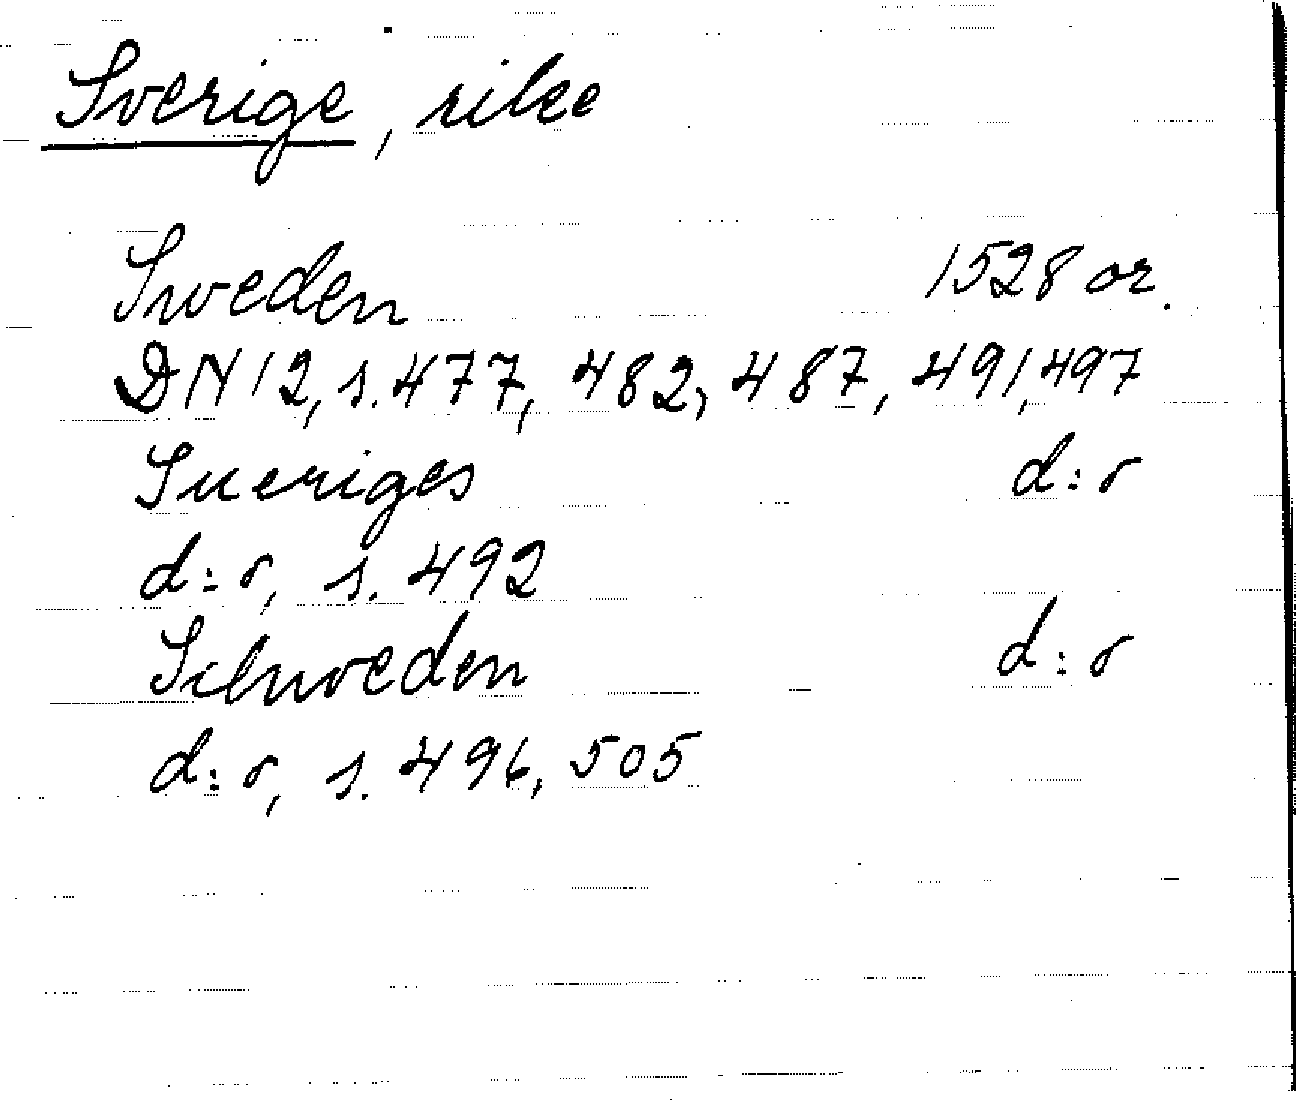 Sverige, rike
Sweden 1528 or.
DN 12, s. 477, 482, 487, 491, 497
Sueriges d:r
d:r, s. 492
Schweden d:r
d:r, s. 496, 505